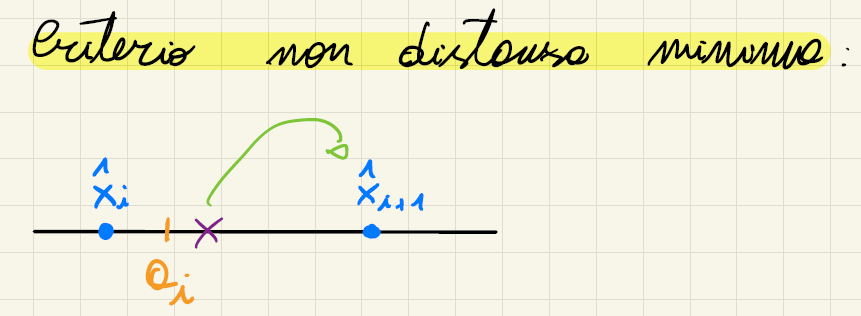 Criterio non distanza minima:
x̂ᵢ x̂ᵢ₊₁
aᵢ